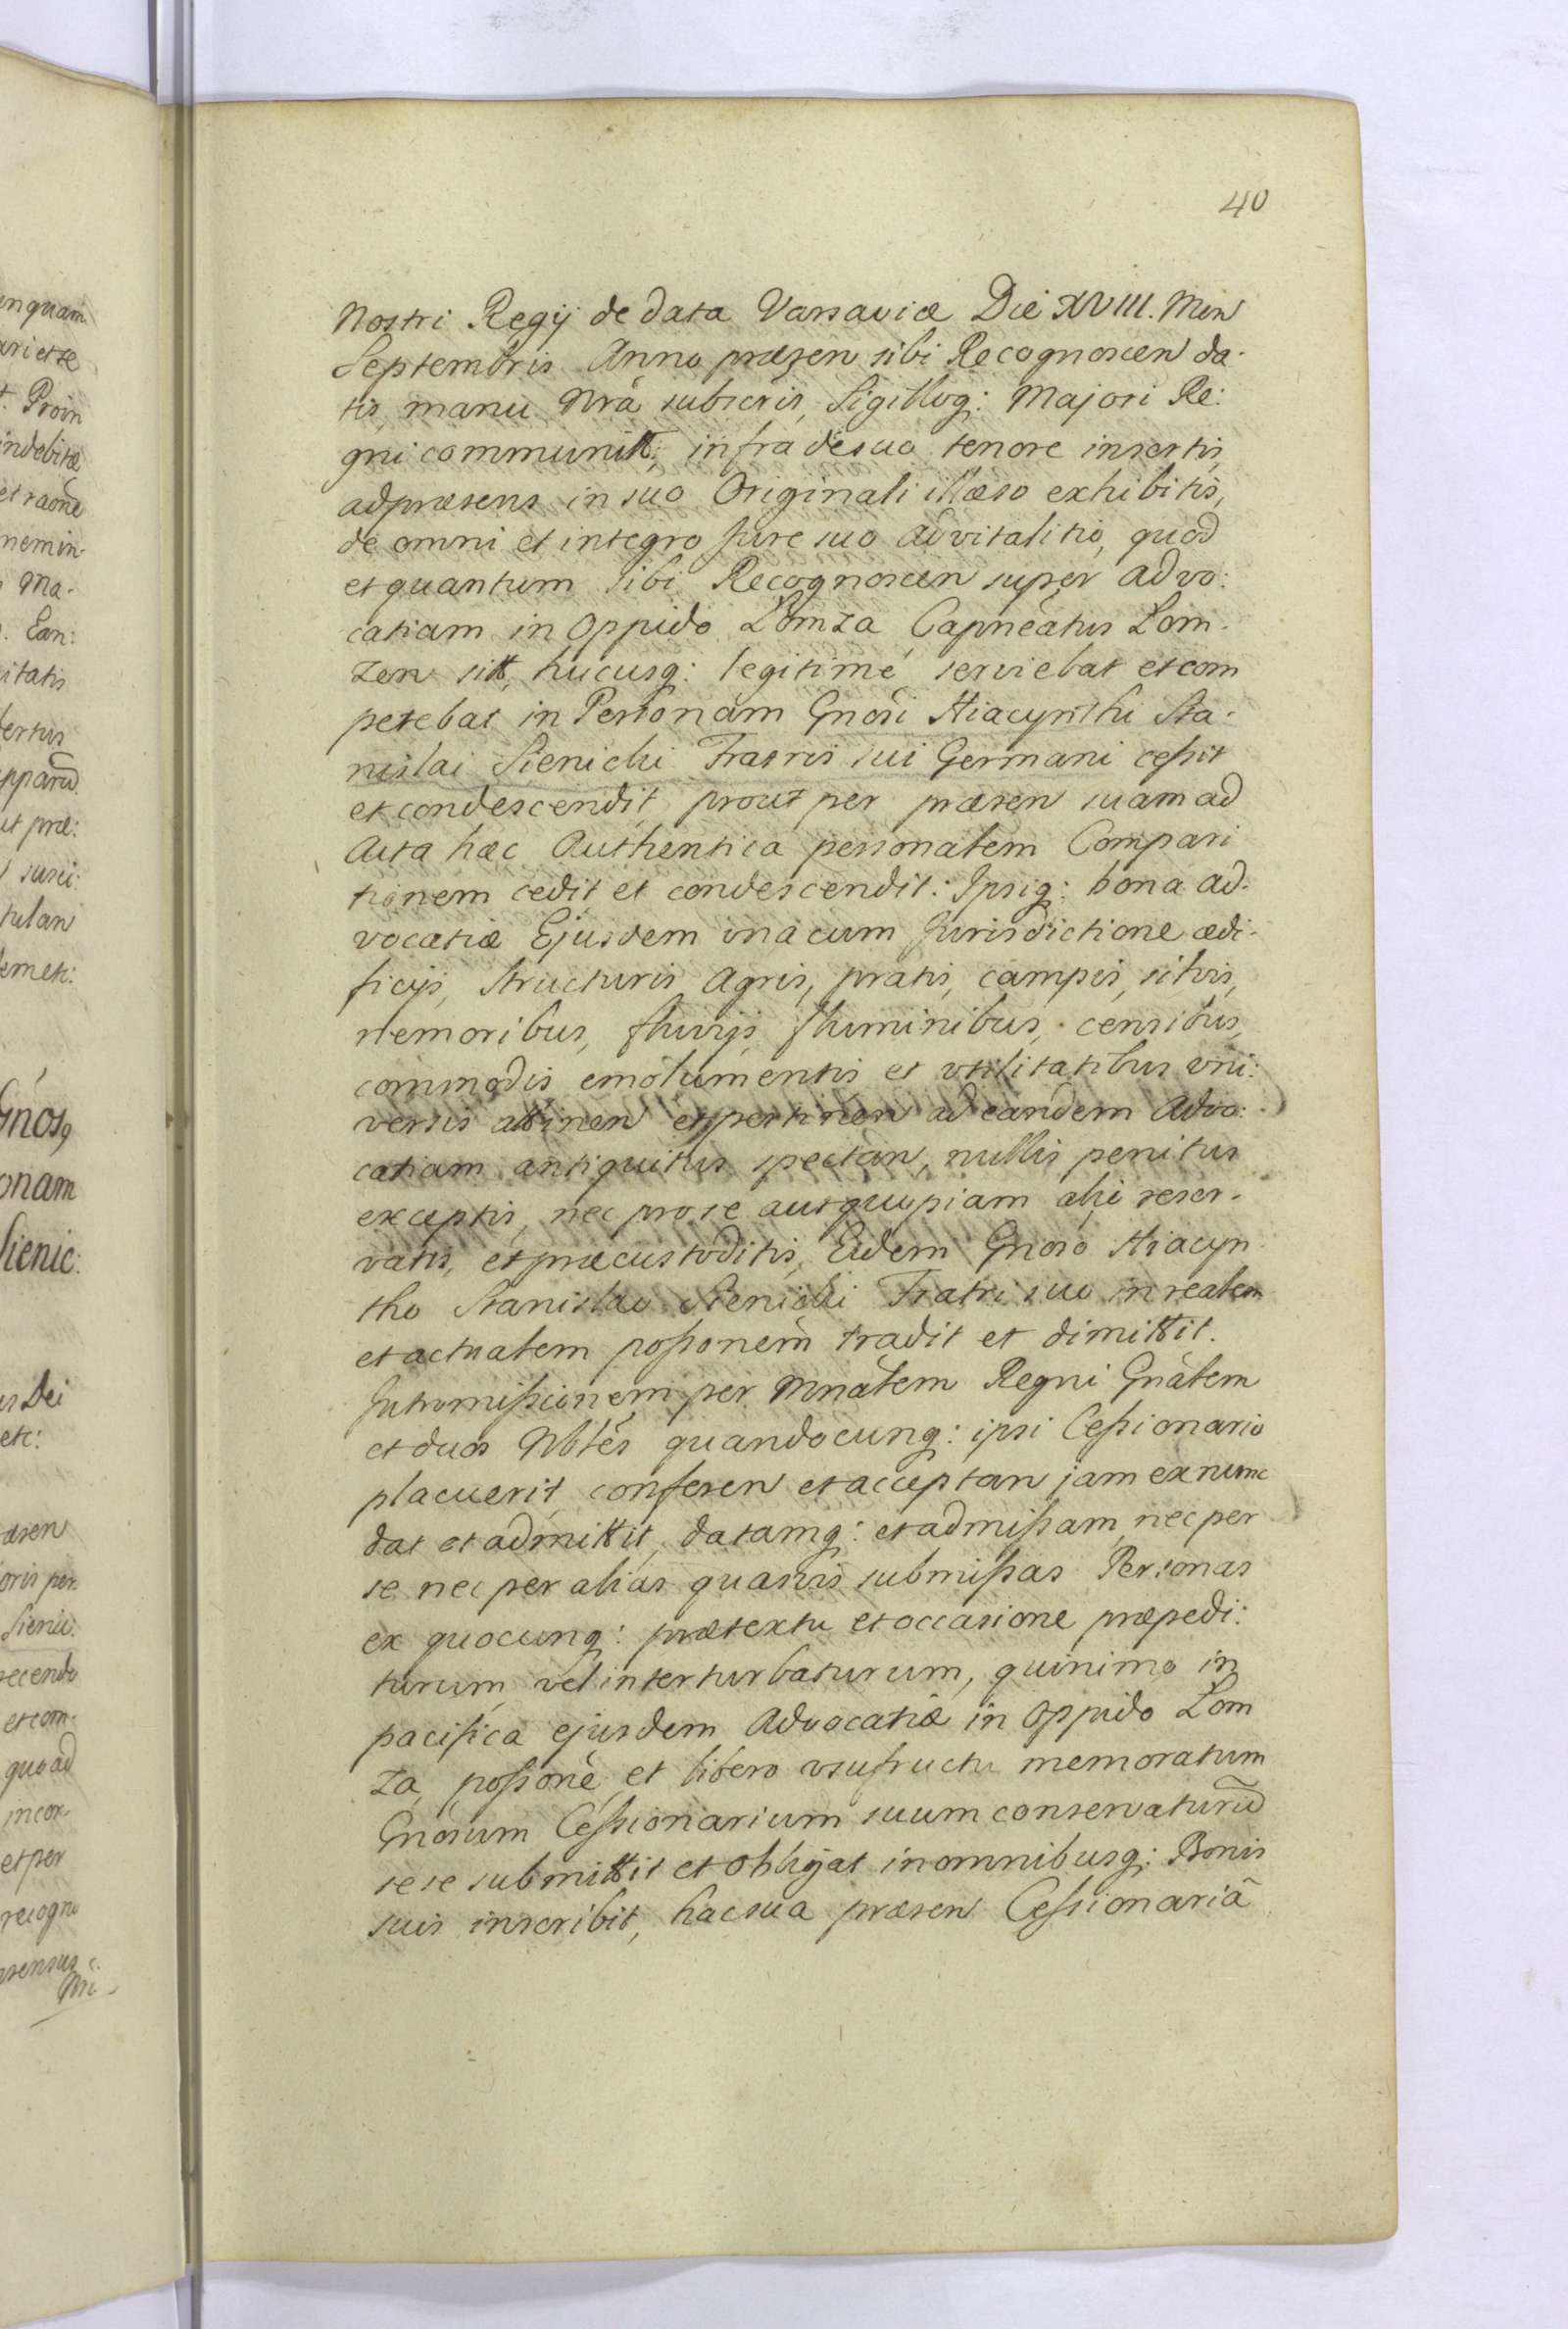 40
Nostri Regij de data Varsaviæ Die XVIII. Men
Septembris Anno præsen sibi Recognoscen da-
tis, manu Nrâ subscris, Sigilloq: Majori Re:
gni communitt, infra de suo tenore insertis,
ad præsens in suo Originali illæso exhibitis,
de omni et integro Jure suo advitalitio, quod
et quantum sibi Recognoscen super advo:
catiam in Oppido Lomza Capneatus Lom-
zen sitt, hucusq: legitimé serviebat et com
petebat in Personam Gnosi Hiacynthi Sta-
nislai Sienicki Fratris sui Germani cessit
et condescendit, prout per præsen suam ad
Acta hæc Authentica personalem Compari
tionem cedit et condescendit: Ipsiq: bona ad-
vocatiæ Ejusdem una cum Jurisdictione ædi-
ficijs, structuris, agris, pratis, campis, silvis,
nemoribus, fluvijs, fluminibus, censibus,
commodis, emolumentis et vtilitatibus vni:
versis attinen et pertinen ad eandem Advo:
catiam antiquitus spectan, nullis penitus
exceptis, nec pro se aut quopiam alio reser-
vatis, et præcustoditis, Eidem Gnoso Hiacyn
tho Stanislao Sienicki Fratri suo in realem
et actualem possonem tradit et dimittit.
Intromissionem per Mnalem Regni Gnalem
et duos Nbles quandocunq: ipsi Cessionario
placuerit, conferen et acceptan jam ex nunc
dat et admittit, datamq: et admissam, nec per
se nec per alias quasvis submissas Personas
ex quocunq: prætextu et occasione præpedi:
turum, vel interturbaturum, quinimo in
pacifica ejusdem Advocatiæ in Oppido Lom
za, possone et libero vsufructu memoratum
Gnosum Cessionarium suum conservaturū
sese submittit et obligat in omnibusq: Bonis
suis inscribit, hac sua præsen Cessionariâ